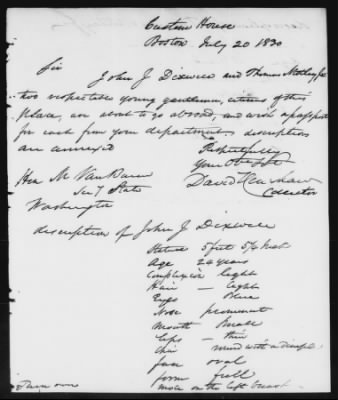 Custom House
Boston July 20 1830
Sir
John J Dixwell and Thomas Motley Jr
two respectable young gentlemen, citizens of this
place, are about to go abroad, and wish a passport
for each from your department. descriptions
are annexed
Respectfully
Your Obt Sevt
David Henshaw
Collector
Hon M. Van Buren
Sec'y State
Washington
description of John J Dixwell
Stature 5 feet 5 1/2 Inch
Age 24 years
Complexion light
Hair — light
Eyes blue
Nose prominent
Mouth small
lips — thin
chin round with a dimple
face oval
form full
mole on the left breast
Turn over